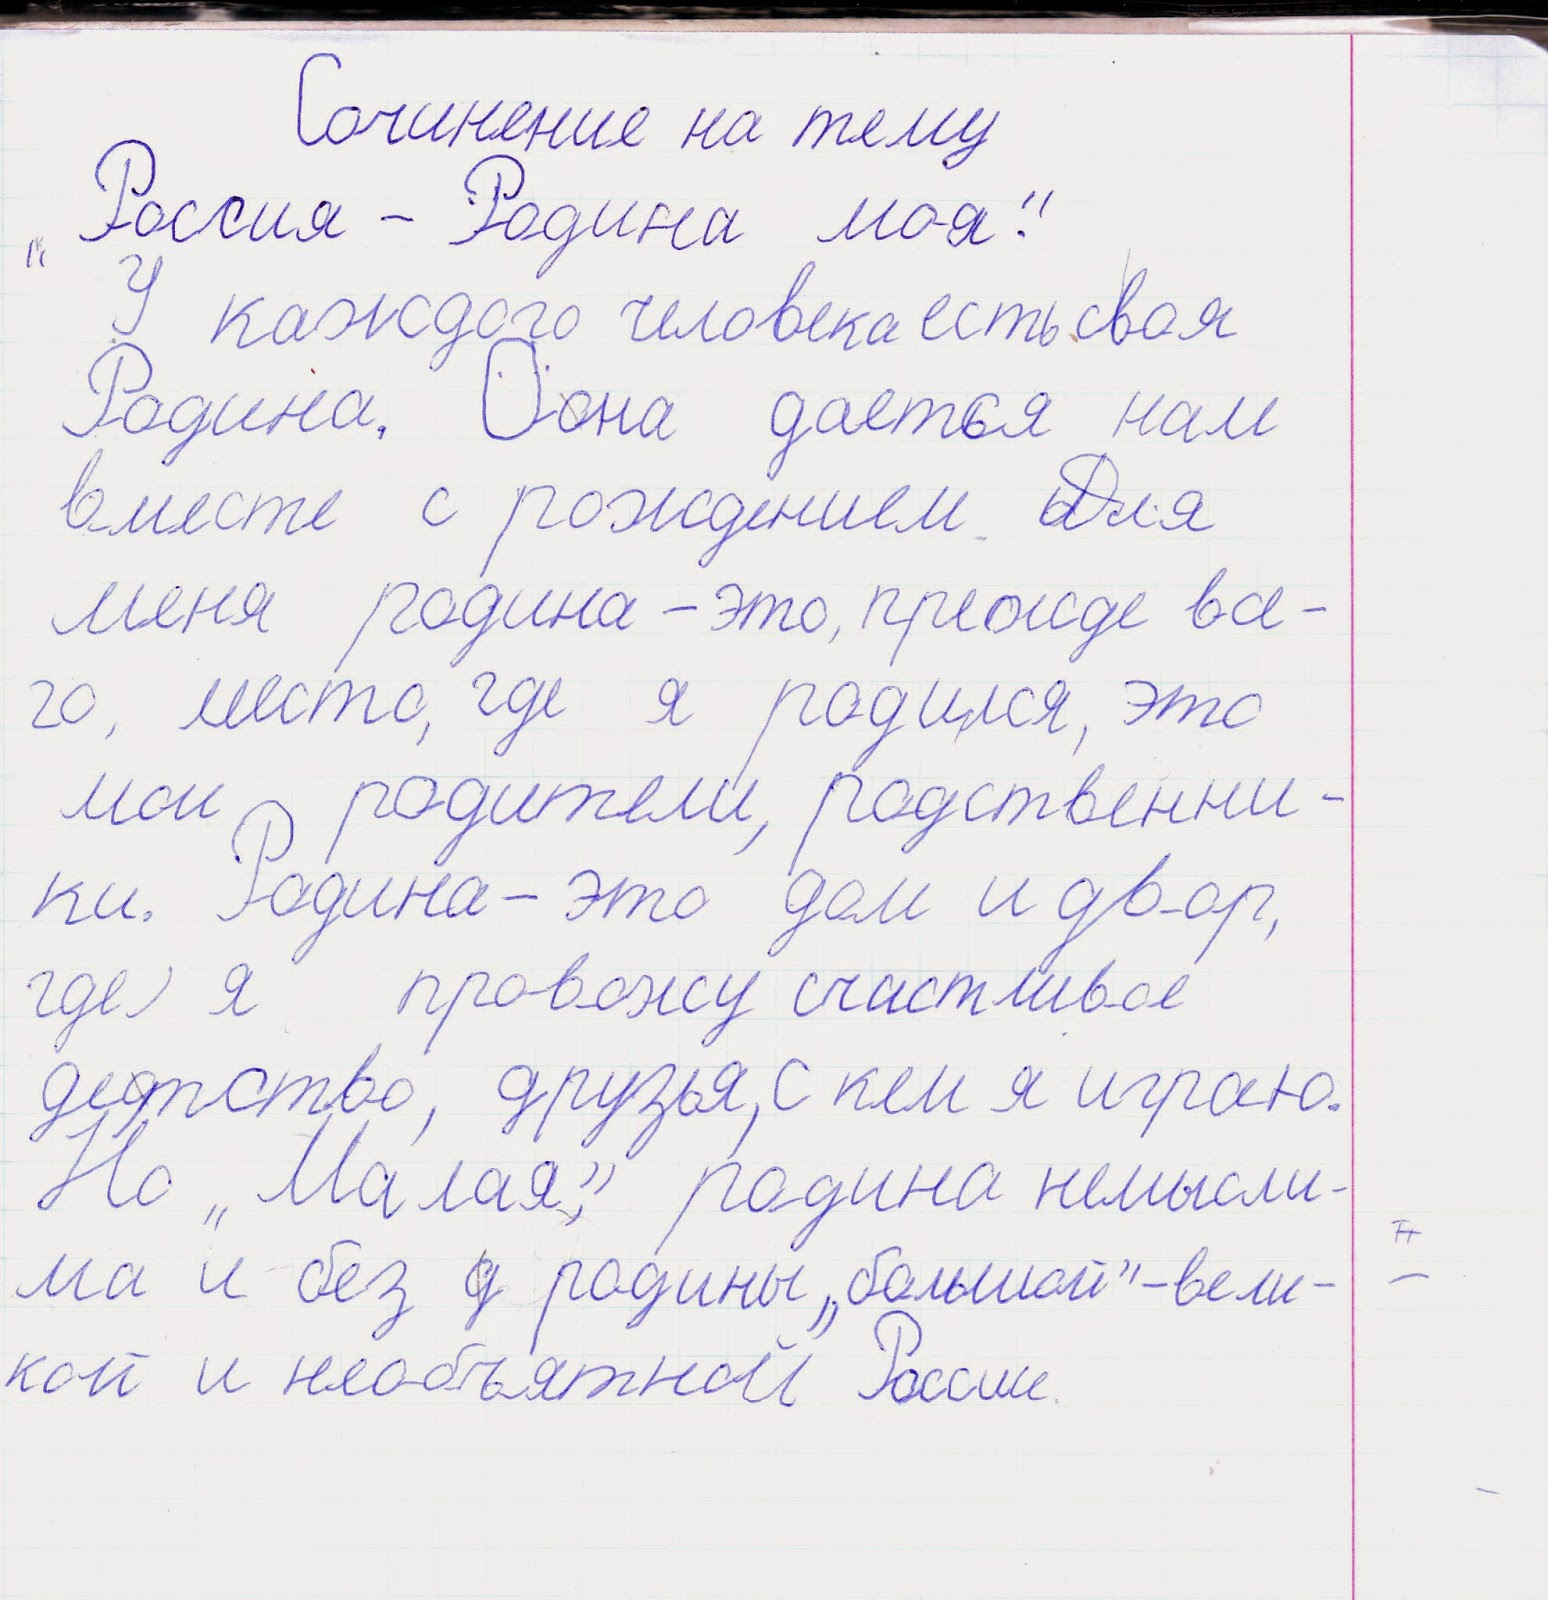 Сочинение на тему
„Россия – Родина моя."
У каждого человека есть своя
Родина. Оона дается нам
вместе с рождением. Для
меня родина – это, прежде все-
го, место, где я родился, это
мои родители, родственни-
ки. Родина – это дом и двор,
где я провожу счастливое
детство, друзья, с кем я играю.
Но „Малая", родина немысли-
ма и без родины „большой" – вели-
кой и необъятной России.